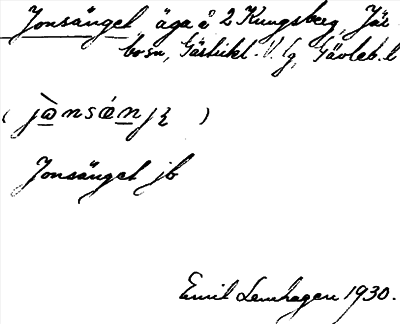 Jonsänget äga å 2 Kungsberg, Jär-
bo sn, Gästrikl. V. lg, Gävleb. l
(jònsǽnjẹ)
Jonsänget jb
Emil Lennhagen 1930.